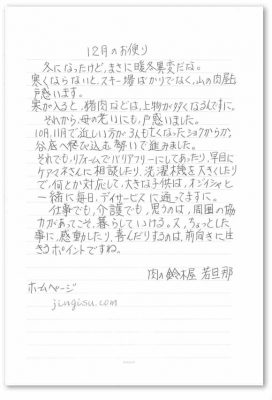 12月のお便り
冬になったけど、まさに暖冬異変だな。
寒くならないと、スキー場ばかりでなく、山の肉屋も
戸惑います。
寒が入ると、猪肉などは、上物が多くなるんですに。
それから、母の老いにも、戸惑いました。
10月、11月で近しい方が3人も亡くなったショックからか
谷底へ飛び込む勢いで進みました。
それでも、リフォームでバリアフリーにしてあったり、早目に
ケアマネさんに相談したり、洗濯機を大きくしたり
で、何とか対応して、大きな子供は、オジイチャと
一緒に毎日、デイサービスに通ってますに。
仕事でも、介護でも、思うのは、周囲の協
力があってこそ、暮らしていける。又、ちょっとした
事に、感動したり、喜んだりするのは、前向きに生
きるポイントですね。
肉の鈴木屋 若旦那
ホームページ
jingisu.com